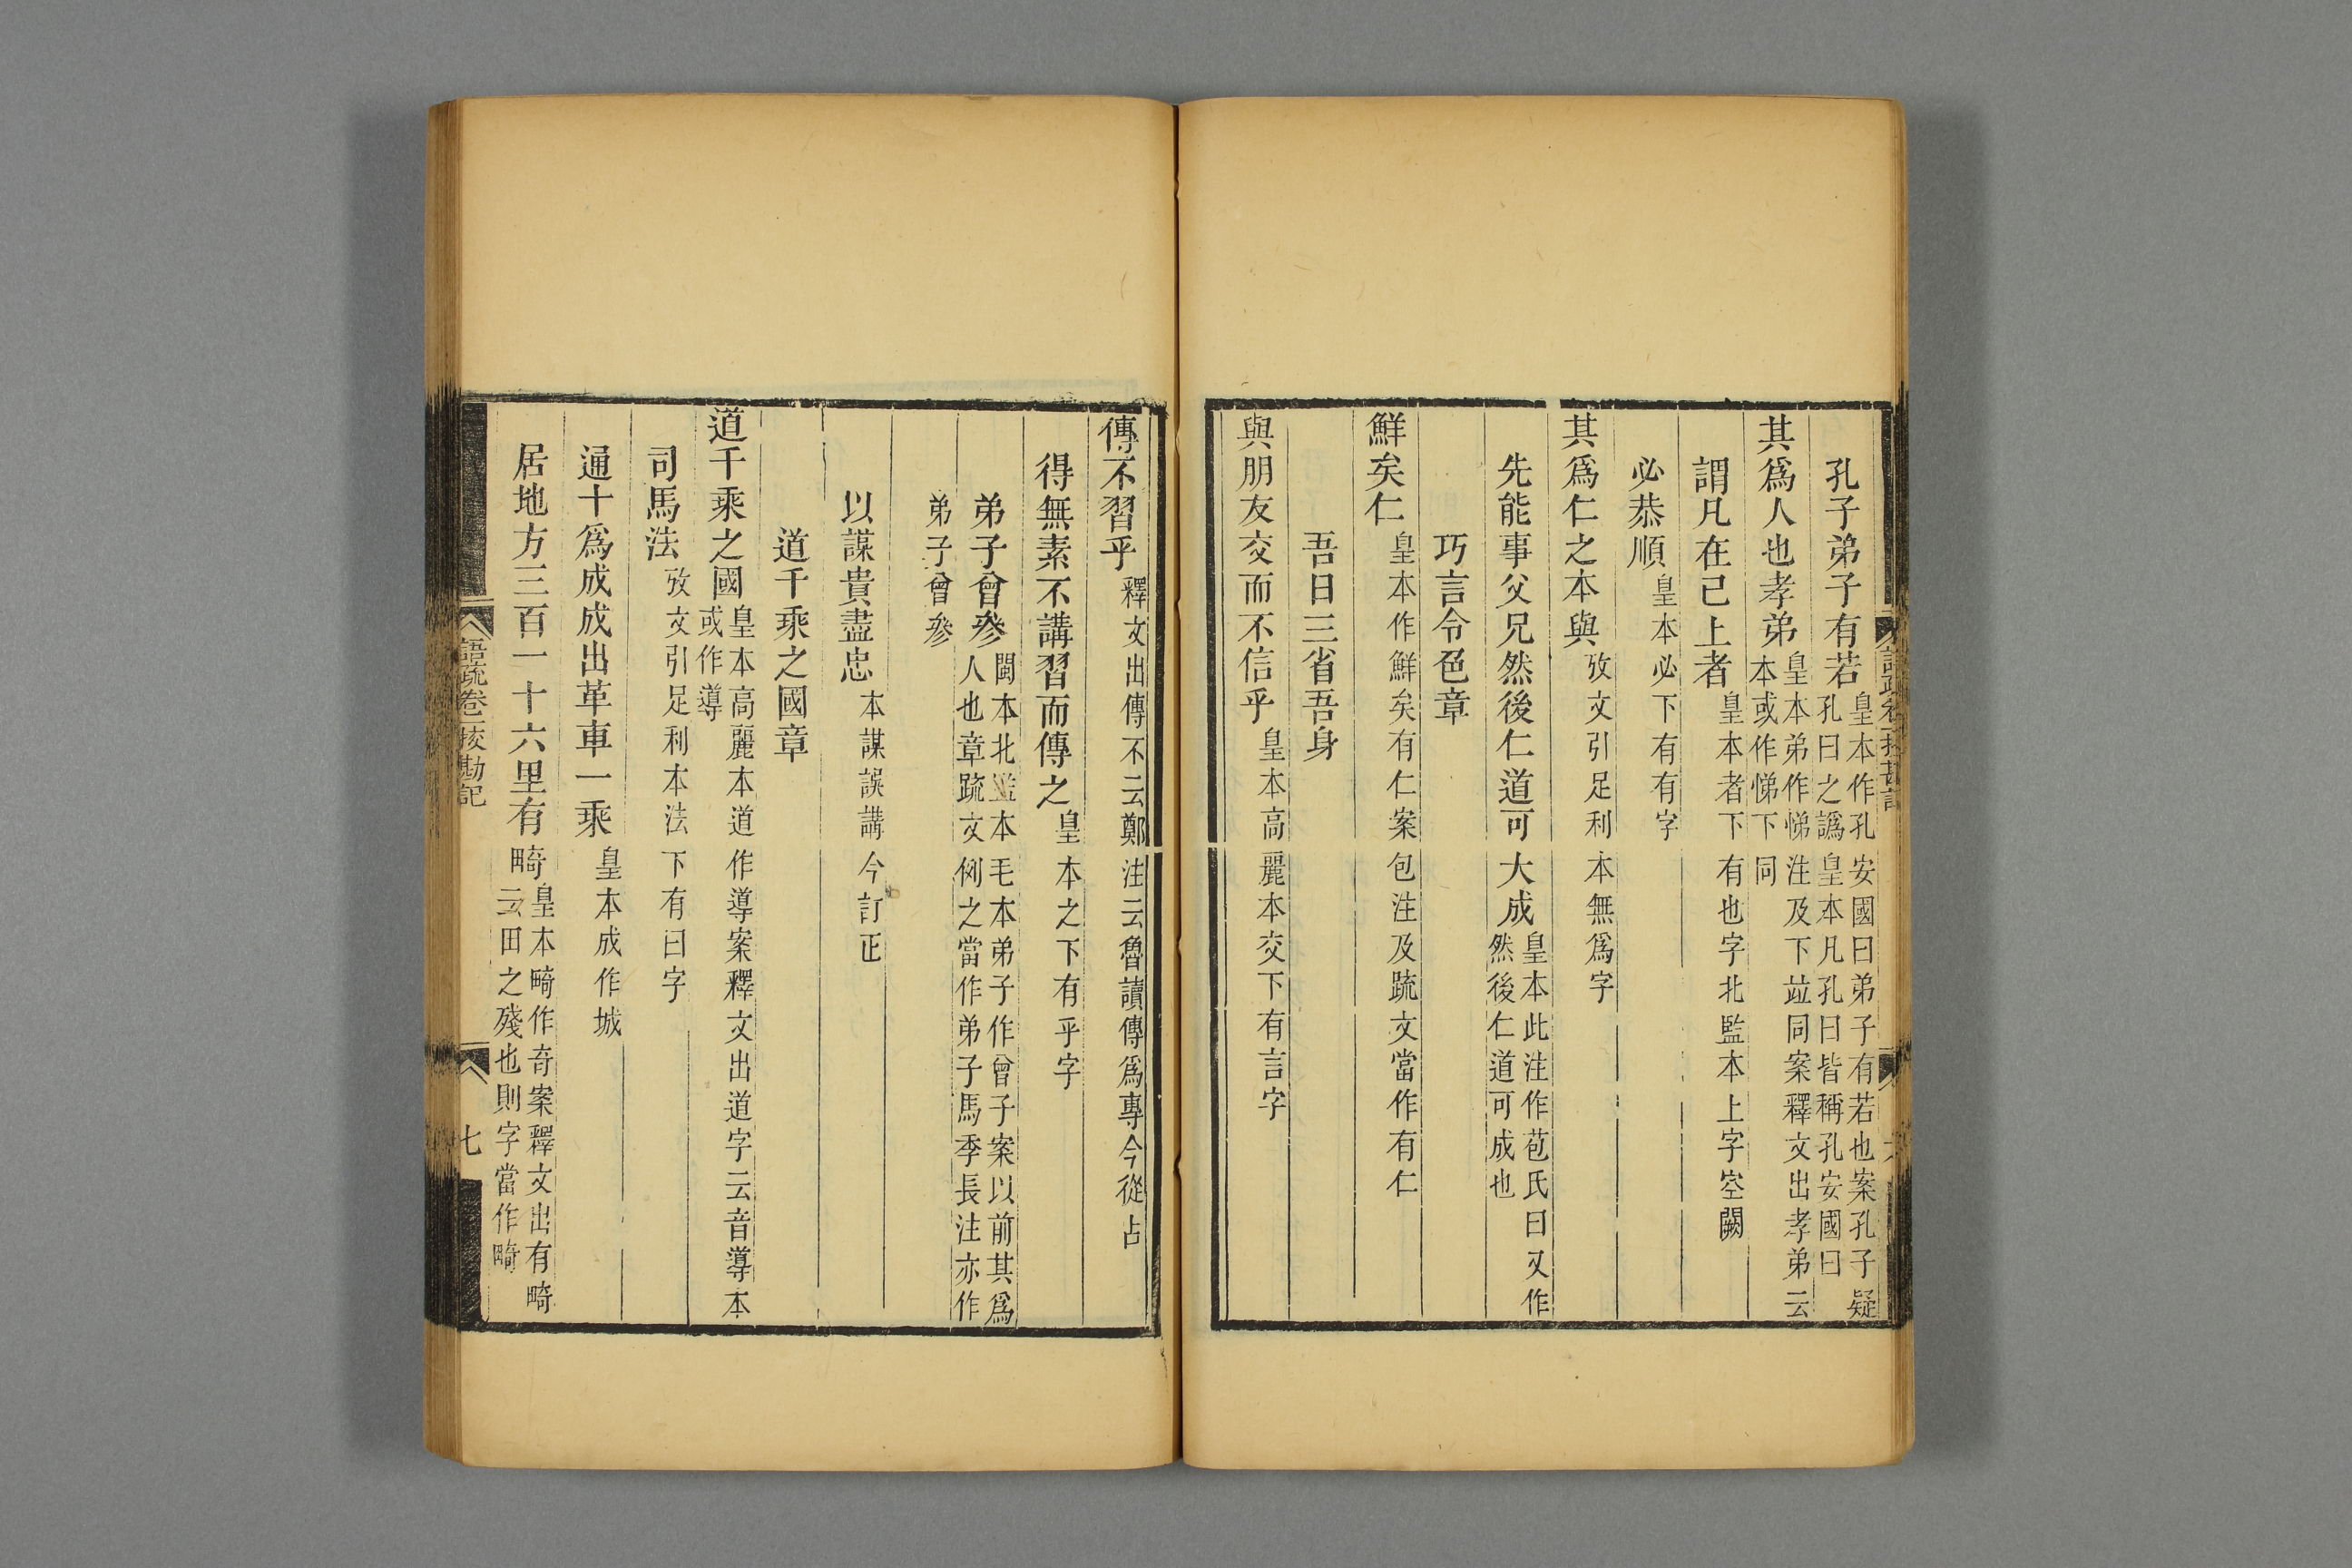 孔子弟子有若皇本作孔安國曰弟子有若也案孔子疑孔曰之譌皇本凡孔曰皆稱孔安國曰
其爲人也孝弟皇本弟作悌注及下竝同案釋文出孝弟云本或作悌下同
謂凡在已上者皇本者下有也字北監本上字空闕
必恭順皇本必下有有字
其爲仁之本與攷文引足利本無爲字
先能事父兄然後仁道可大成皇本此注作苞氏曰又作然後仁道可成也
巧言令色章
鮮矣仁皇本作鮮矣有仁案包注及疏文當作有仁
吾日三省吾身
與朋友交而不信乎皇本高麗本交下有言字
傳不習乎釋文出傳不云鄭注云魯讀傳爲專今從占
得無素不講習而傳之皇本之下有乎字
弟子曾參閩本北監本毛本弟子作曾子案以前其爲人也章疏文例之當作弟子馬季長注亦作弟子曾參
以謀貴盡忠本謀誤講今訂正
道千乘之國章
道千乘之國皇本高麗本道作導案釋文出道字云音導本或作導
司馬法攷文引足利本法下有曰字
通十爲成成出革車一乘皇本成作城
居地方三百一十六里有畸皇本畸作奇案釋文出有畸云田之殘也則字當作畸
語疏卷一挍勘記
七